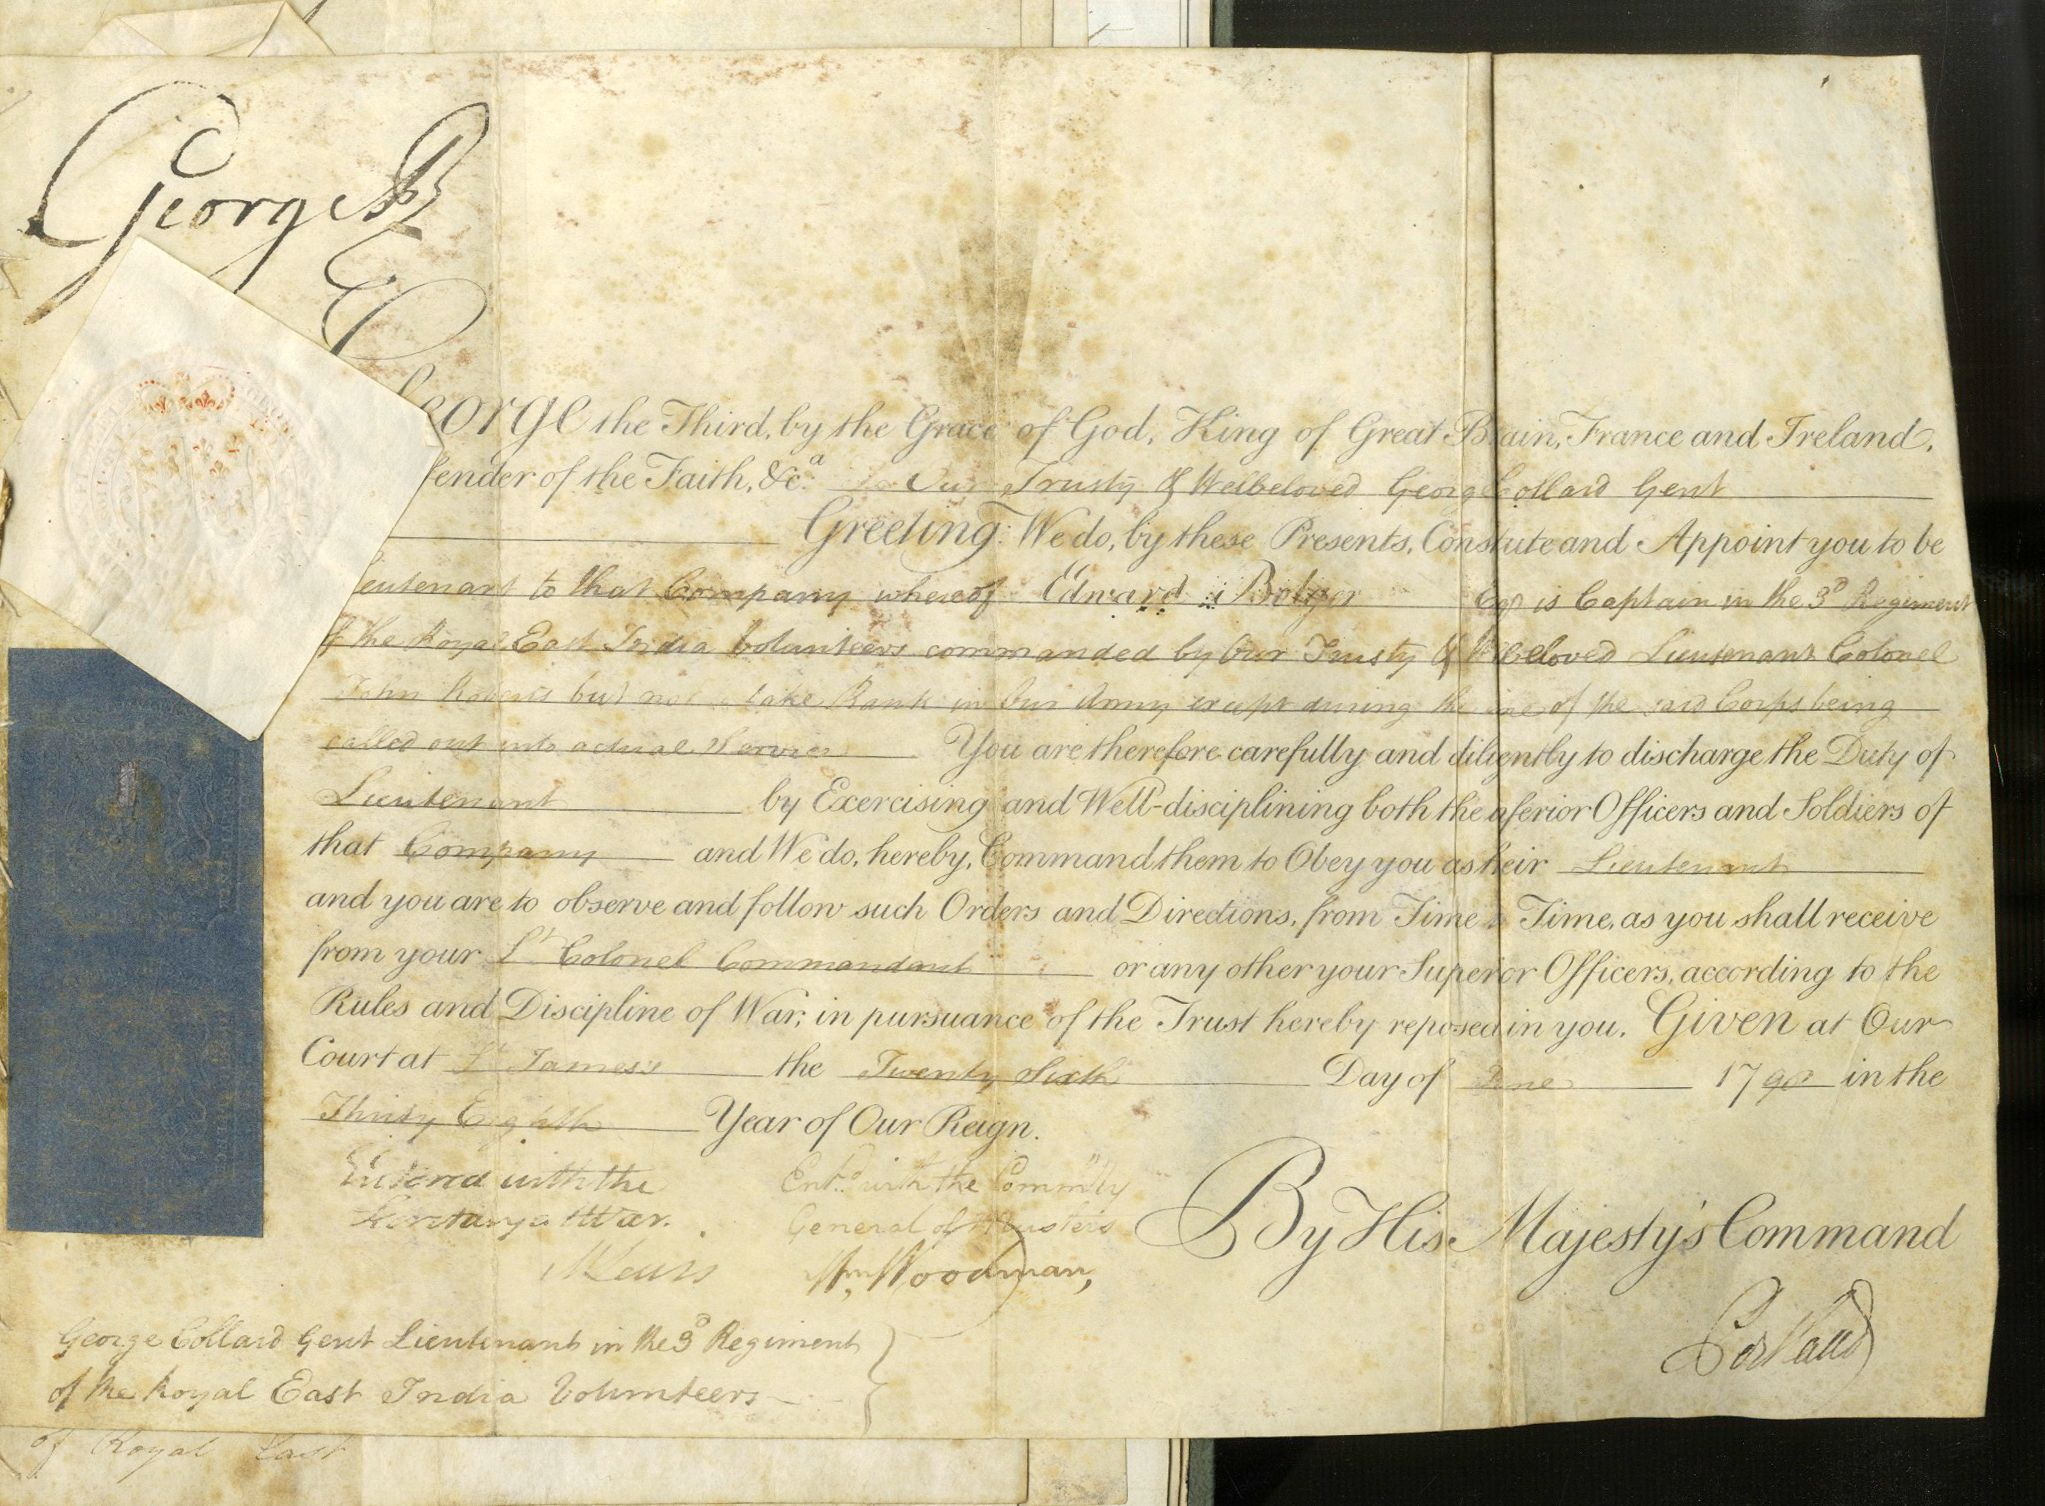 George R
eorge the Third, by the Grace of God, King of Great B ain, France and Ireland,
fender of the Faith, &c.a To Our Trusty & Welbeloved George Collard Gent
Greeting: We do, by these Presents, Const tute and Appoint you to be
ieutenant to that Company whereof Edward Bolger Esqr is Captain in the 3d Regiment
of the Royal East India Volunteers commanded by Our Trusty & W beloved Lieutenant Colonel
John Roberts but not to take Rank in Our Army except during the ime of the said Corps being
called out into actual Service You are therefore carefully and diligently to discharge the Duty of
Lieutenant by Exercising and Well-disciplining both the nferior Officers and Soldiers of
that Company and We do, hereby, Command them to Obey you as heir Lieutenant
and you are to observe and follow such Orders and Directions, from Time to Time, as you shall receive
from your Lt Colonel Commandant or any other your Superior Officers, according to the
Rules and Discipline of War, in pursuance of the Trust hereby reposed in you. Given at Our
Court at St James's the Twenty Sixth Day of June 1798 in the
Thirty Eighth Year of Our Reign.
Entered with the
Secretary at War.
Entd with the Commry
General of Musters
Wm Woodman,
By His Majesty's Command
Portland
George Collard Gent Lieutenant in the 3d Regiment
of the Royal East India Volunteers
of Royal East